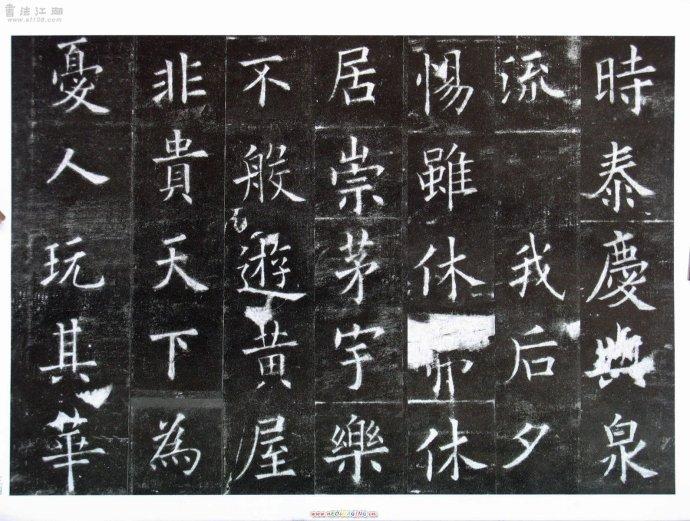 書法江湖
www.sf108.com
時泰慶與泉
流我后夕
惕雖休休
居崇茅宇樂
不般遊黄屋
非貴天下為
憂人玩其華